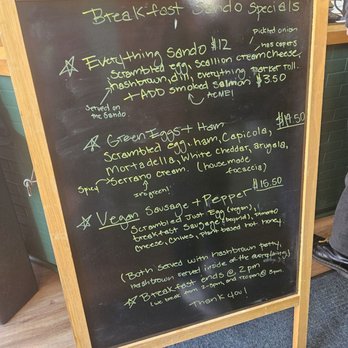 Breakfast Sando Specials
Everything Sando $12
Pickled onion
has capers
Scrambled egg, Scallion cream cheese,
hashbrown, dill, everything parker roll.
+ ADD smoked salmon $3.50
ACME!
Served on
the Sando
Green Eggs + Ham $14.50
Scrambled egg, ham, Capicola,
Mortadella, White cheddar, arugula,
Spicy Serrano cream. (housemade
focaccia)
so green!
Vegan Sausage + Pepper $15.50
Scrambled Just Egg (vegan),
breakfast Sausage (beyond), tomato
cheese, chives, plant based hot honey.
(Both served with hashbrown patty,
hashbrown served inside of the everything)
Breakfast ends @ 2pm
(we break from 2-3pm, and reopen @ 3pm)
Thank you!